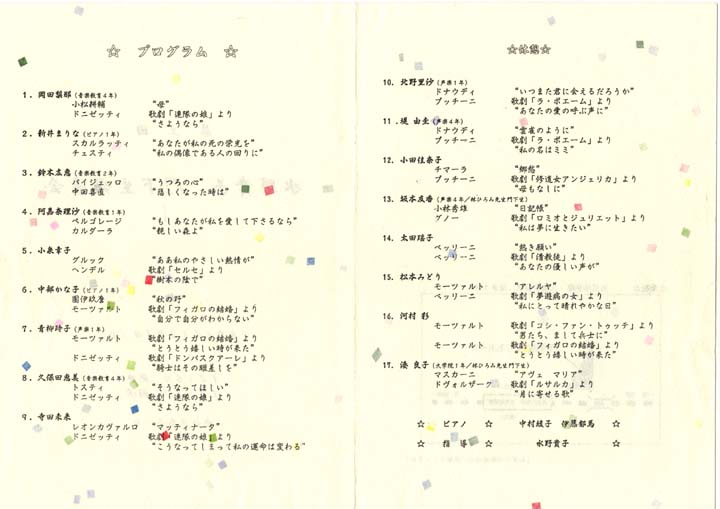 ☆ プログラム ☆
1. 岡田梨耶 (音楽教育4年)
小松耕輔 “母”
ドニゼッティ 歌劇「連隊の娘」より
“さようなら”
2. 新井まりな (ピアノ1年)
スカルラッティ “あなたが私の死の栄光を”
チェスティ “私の偶像である人の回りに”
3. 鈴木友恵 (音楽教育2年)
パイジェッロ “うつろの心”
中田喜直 “悲しくなった時は”
4. 阿嘉奈理沙 (音楽教育1年)
ペルゴレージ “もしあなたが私を愛して下さるなら”
カルダーラ “親しい森よ”
5. 小泉幸子
グルック “ああ私のやさしい熱情が”
ヘンデル 歌劇「セルセ」より
“樹木の陰で”
6. 中部かな子 (ピアノ1年)
團伊玖磨 “秋の野”
モーツァルト 歌劇「フィガロの結婚」より
“自分で自分がわからない”
7. 青柳玲子 (声楽1年)
モーツァルト 歌劇「フィガロの結婚」より
“とうとう嬉しい時が来た”
ドニゼッティ 歌劇「ドンパスクアーレ」より
“騎士はその眼差しを”
8. 久保田恵美 (音楽教育4年)
トスティ “そうなってほしい”
ドニゼッティ 歌劇「連隊の娘」より
“さようなら”
9. 寺田未来
レオンカヴァルロ “マッティナータ”
ドニゼッティ 歌劇「連隊の娘」より
“こうなってしまって私の運命は変わる”
☆休憩☆
10. 北野里沙 (声楽1年)
ドナウディ “いつまた君に会えるだろうか”
プッチーニ 歌劇「ラ・ボエーム」より
“あなたの愛の呼ぶ声に”
11. 堤 由圭 (声楽4年)
ドナウディ “雲雀のように”
プッチーニ 歌劇「ラ・ボエーム」より
“私の名はミミ”
12. 小田佳奈子
チマーラ “郷愁”
プッチーニ 歌劇「修道女アンジェリカ」より
“母もなしに”
13. 坂本友香 (声楽4年/林ひろみ先生門下生)
小林秀雄 “日記帳”
グノー 歌劇「ロミオとジュリエット」より
“私は夢に生きたい”
14. 太田瑞子
ベッリーニ “熱き願い”
ベッリーニ 歌劇「清教徒」より
“あなたの優しい声が”
15. 松本みどり
モーツァルト “アレルヤ”
ベッリーニ 歌劇「夢遊病の女」より
“私にとって晴れやかな日”
16. 河村 彩
モーツァルト 歌劇「コシ・ファン・トゥッテ」より
“男たち、まして兵士に”
モーツァルト 歌劇「フィガロの結婚」より
“とうとう嬉しい時が来た”
17. 湊 良子 (大学院1年/林ひろみ先生門下生)
マスカーニ “アヴェ マリア”
ドヴォルザーク 歌劇「ルサルカ」より
“月に寄せる歌”
☆ ピアノ ☆ 中村紋子 伊恩部馬 ☆
☆ 指 導 ☆ 水野貴子 ☆